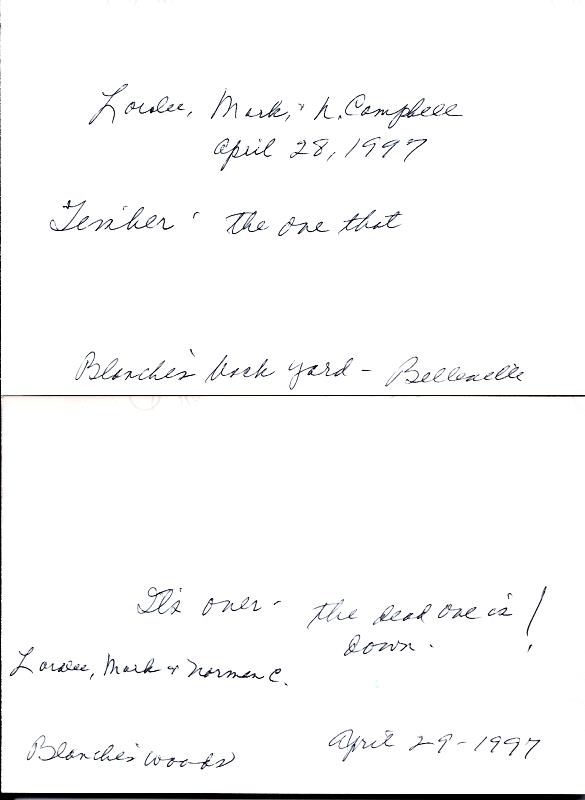 Loralee, Mark, & N. Campbell
April 28, 1997
"Timber" the one that
Blanche's back yard - Belleville
It's over - the dead one is down. !
Loralee, Mark & Norman C.
Blanche's woods
April 29-1997